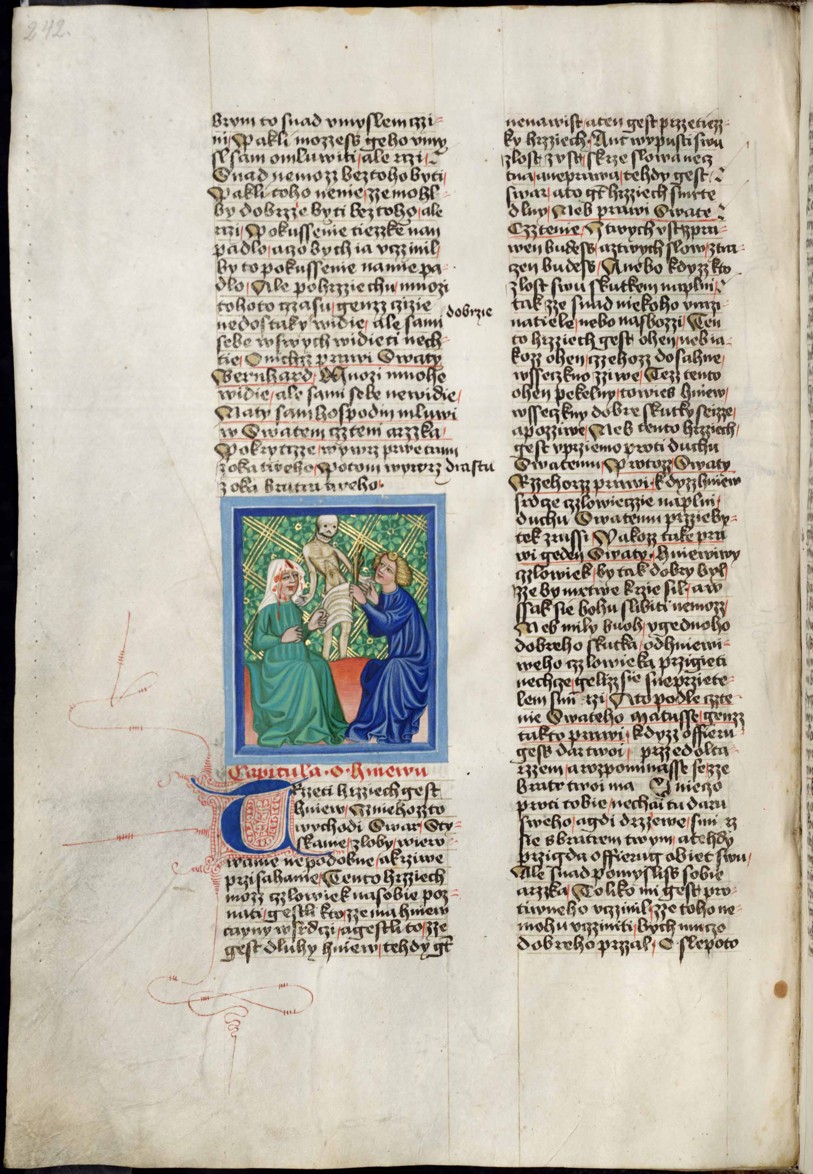 242.
brym to snad vmyslem czi-
ni, Pakli mozzess geho vmy
sl sam omluwiti, ale rzi,
Snad nemozz bez toho byti,
Pakli toho nenie, zze mohl
by dobrzze byti bez toho, ale
rzi, Pokussenie tiezzke nan
padlo, a czo bych ia vczinil,
by to pokussenie na mie pa-
dlo, Ale pohrzziechu mnozi
tohoto czzasu, genzz czizie
nedostatky widie, ale sami
dobrzie
sebe w swych widieti nech-
tie, O nichzz prawi Swaty
Bernhard, Mnozi mnohe
widie, ale sami sebe newidie,
Naty sam hospodin mluwi
w Swatem czzteni arzzka,
Pokrytcze, wywrz prwe trnu
z oka tweho, Potom wywrz drastu
z oka bratra tweho.
Capitula o hniewu
Trzeti hrzziech gest
hniew, Z niehozzto
wychodi Swar, Sty-
skanie, zloby, wierw-
wanie nepodobne, a krziwe
przisahanie, Tento hrzziech
mozz czzlowiek na sobie poz-
nati, gestli kto, zze ma hniew
taynny w srdczi, a gestli to, zze
gest dluhy hniew, tehdy gt
nenawist, a ten gest przzetiezz-
ky hrzziech, Ant wypusti swu
zlost z vst skrze slowa necz
tna, a neprawa, tehdy gest
swar, a to gt hrzziech smrte
dlny, Neb prawi Swate
Czztenie, Z twych vst zpra-
wen budess, a z twych slow ztra-
czen budess, Anebo kdyzz kto
zlost swu skutkem naplni,
tak zze snad niekoho vrazi
na tiele, nebo na sbozzi, Ten
to hrzziech gest ohen, neb ia-
kozz ohen, czzehozz dosahne,
wsseczkno zziwe, Tezz tento
ohen pekelny, towies hniew,
wsseczkny dobre skutky seizze,
a pozziwe, Neb tento hrzziech
gest vprziemo proti duchu
Swatemu, Protozz Swaty
Rzzehorzz prawi, kdyzz hniew
srdcze czzlowieczzie naplni,
duchu Swatemu przzieby-
tek zrussi, Yakozz take pra
wi geden Swaty, hniewiwy
czzlowiek, by tak dobry byl,
zze by mrtwe krziesil, a w
ssak sie bohu slibiti nemozz,
Neb mily buoh vgednoho
dobreho skutka, od hniewi-
weho czzlowieka przigieti
nechcze, gelizz sie sneprziete-
lem smirzi, A to podle czzte-
nie Swateho Matusse, genzz
takto prawi, kdyzz offieru
gess dar twoi przed olta-
rzzem, a wzpominasse se, zze
bratr twoi ma nieczo
proti tobie, nechai tu daru
sweho, a gdi drzzewe, smirz
sie s bratrem twym, a tehdy
przigda offierug obiet swu,
Ale snad pomysliss sobie
arzzka, Toliko mi gest pro-
tiwneho vczinil, zze toho ne-
mohu vcziniti, bych mu czo
dobreho przzal, O slepoto